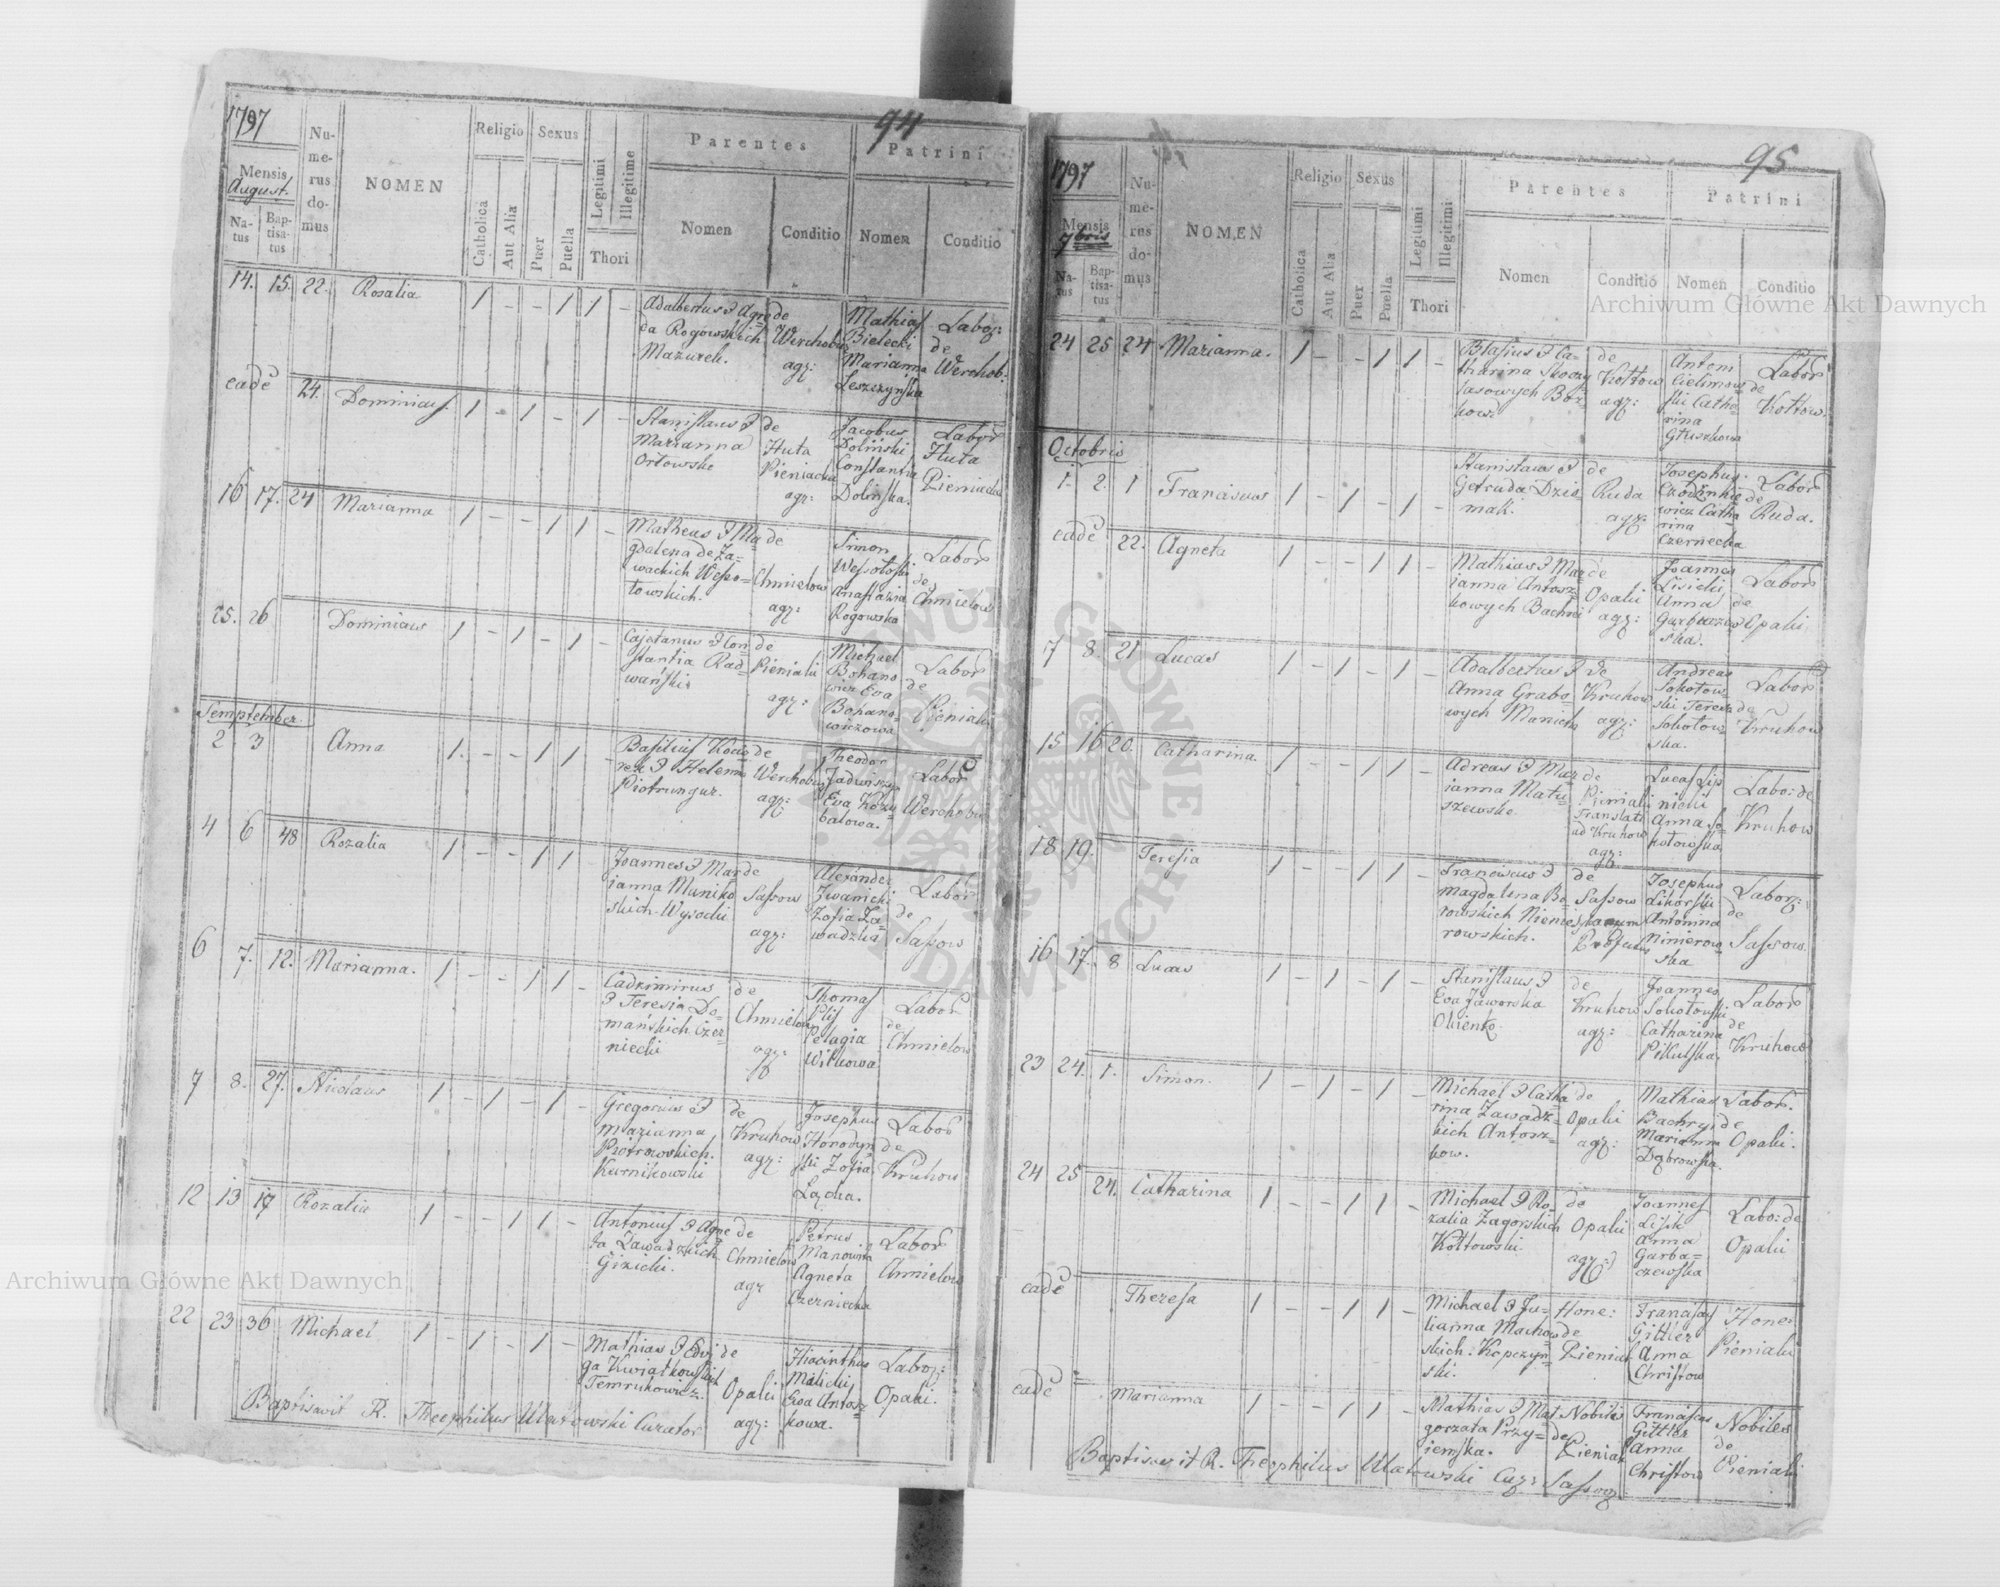 1797
94
Mensis
August.
Na-
tus
Bap-
tisa-
tus
Nu-
me-
rus
do-
mus
NOMEN
Religio
Catholica
Aut Alia
Sexus
Puer
Puella
Legitimi
Illegitime
Thori
Parentes
Nomen
Conditio
Patrini
Nomen
Conditio
14. 15. 22. Rosalia 1 - - 1 1 -
Adalbertus
da Rogowskich
Mazurek.
de
Werchobus
agr:
Mathias
Bielecki
Marianna
Leszczynska
Labor:
de
Werchob:
eadē 24. Dominicus. 1 - 1 - 1 -
Stanislaus &
Marianna
Orłowskie
de
Huta
Pieniacka
agr:
Jacobus
Doliński
Constantia
Dolińska.
Labor
Huta
Pieniacka
16 17. 24 Marianna 1 - - 1 1 -
Matheus & Ma
gdalena de Za=
wackich Weso=
łowskich.
de
Chmielow
agr:
Simon
Wesołoski
Anastazia
Rogowska
Labor
de
Chmielow
25. 26 Dominicus 1 - 1 - 1 -
Cajetanus & Con=
stantia Rad=
wańskie
de
Pieniaki
agr:
Michael
Bohano
wicz Eva
Bohano=
wiczowa
Labor
de
Pieniaki
Semptember
2 3 Anna 1. - - 1 1 -
Basilius
rek & Helena
Piotrungur.
de
Werchobus
agr:
Theodor
Eva
balowa.
Labor
Werchobus
4 6 48 Rozalia 1 - - 1 1 -
Joannes & Mar
ianna Muniko
skich-Wysocki
de
Sassow
agr:
Alexander
Iwanicki
Zofia Za=
wadzka
Labor
de
Sassow
6 7. 12. Marianna. 1 - - 1 1 -
Cadzimirus
& Teresia Do=
mańskich Czer=
niecki
de
Chmielow
agr:
Thomas
Pelagia
Witkowa
Labor
de
Chmielow
7 8. 27. Nicolaus 1 - 1 - 1 -
Gregorius &
Marianna
Piotrowskich.
Kurnikowski
de
Kruhow
agr:
Josephus
Horodyń
ski Zofia
Łącka.
Labor
de
Kruhow
12 13 17 Rozalia 1 - - 1 1 -
Antonius & Agne
ta Zawadzkich
Gizicki.
de
Chmielow
agr
Petrus
Agneta
Czerniecka
Labor
Chmielow
22 23 36 Michael 1 - 1 - 1 -
Mathias & Edvi
ga Kwiatkowskich
Temrukowicz.
de
Opaki
agr:
Hiacinthus
Malicki
Eva Antosz
kowa.
Labor:
Opaki.
Baptisavit R. Theophilus Ulatowski Curator
1797
95
Mensis
7bris
Na-
tus
Bap-
tisa-
tus
Nu-
me-
rus
do-
mus
NOMEN
Religio
Catholica
Aut Alia
Sexus
Puer
Puella
Legitimi
Illegitimi
Thori
Parentes
Nomen
Conditio
Patrini
Nomen
Conditio
24 25 24 Marianna. 1 - - 1 1 -
Blasius & Ca=
tharina
de
Kołtow
agr:
Antoni
ski Catha
rina
Głuszkowa
Labor
de
Kołtow.
Octobris
1. 2. 1 Franciscus 1 - 1 - 1 -
Stanislaus &
Getruda Dzis
mak.
de
Ruda
agr:
Josephus
wicz Catha
rina
Czernecka
Labor
de
Ruda.
eadē 22. Agneta 1 - - 1 1 -
Mathias & Mar
ianna Antosz
kowych Bachri
de
Opaki
agr:
Joannes
Lisicki
Anna
Garbaczew
ska.
Labor
de
Opaki
7 8. 21 Lucas 1 - 1 - 1 -
Adalbertus &
Anna Grabo
wych
de
Kruhow
agr:
Andreas
Sokołow=
ski Teresa
Sokołow
ska.
Labor
de
Kruhow
15 16 20. Catharina 1 - - 1 1 -
Adreas & Mar
ianna Matu=
szewskie
de
Pieniaki
Translati
ad Kruhow
agr:
Lucas Lis
nicki
Anna So=
kołowska
Labo: de
Kruhow
18 19. Teresia 1 - - 1 1 -
Franciscus &
Magdalena Bo=
rowskich Niemie
rowskich.
de
Sassow
Josephus
Sikorski
Antonina
Nimierow
ska
Labor:
de
Sassow.
16 17. 8 Lucas 1 - 1 - 1 -
Stanislaus &
Eva Jaworska
Okienko.
de
Kruhow
agr:
Joannes
Sokołowski
Catharina
Pikulska
Labor
de
Kruhow
23 24. 1. Simon. 1 - 1 - 1 -
Michael & Catha
rina Zawadz=
kich Antosz=
kow.
de
Opaki
agr:
Mathias
Bachryj
Marianna
Dąbrowska.
Labor.
de
Opaki.
24 25 24. Catharina 1 - - 1 1 -
Michael & Ro=
zalia Zagorskich
Kołtowski.
de
Opaki
agr:
Joannes
Lisik
Anna
Garba=
czewska
Labo: de
Opaki
eadē Theresa 1 - - 1 1 -
Michael & Ju=
lianna Machow
skich. Kopczyń=
ski.
Hone:
de
Pieniak
Franciscus
Gittler
Anna
Christow
Hone:
Pieniaki
eadē Marianna 1 - - 1 1 -
Mathias & Mał
gorzata Przy=
iemska.
Nobiles
de
Pieniak
Franciscus
Gittler
Anna
Christow
Nobiles
de
Pieniaki
Baptisavit R. Theophilus Ulatowski Cur: Sassov.
Archiwum Główne Akt Dawnych
Archiwum Główne Akt Dawnych
ARCHIWUM GŁÓWNE AKT DAWNYCH